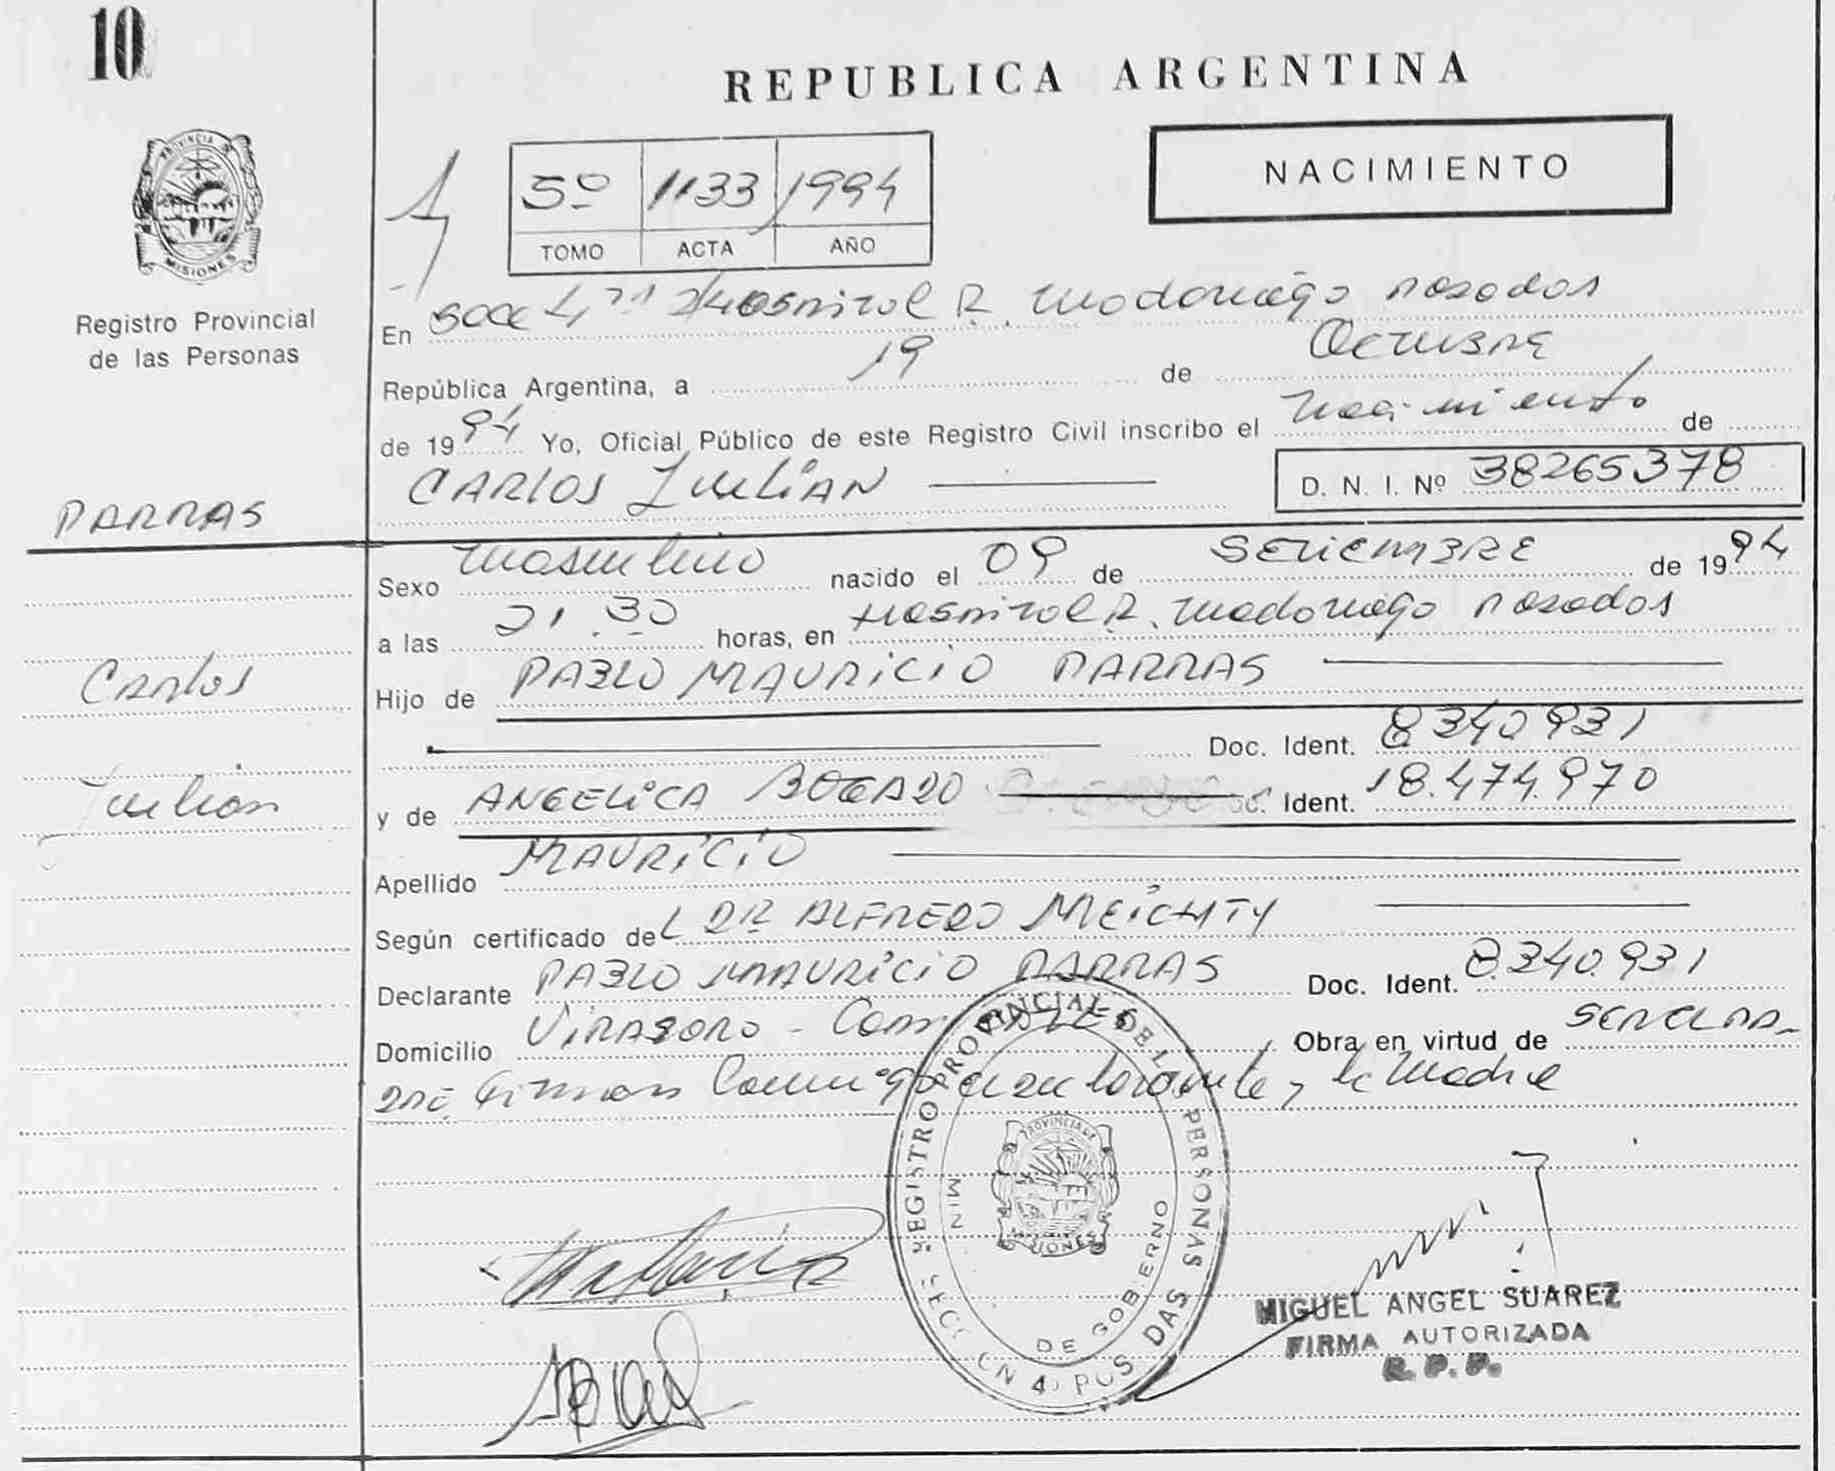 10
REPUBLICA ARGENTINA
NACIMIENTO
5º 1133 1994
TOMO ACTA AÑO
PROVINCIA DE
MISIONES
Registro Provincial
de las Personas
En Secc 4ª Hospital R. Madariaga Posadas
República Argentina, a 19 de Octubre
de 1994 Yo, Oficial Público de este Registro Civil inscribo el Nacimiento de
CARLOS Julian D. N. I. Nº 38265378
PARRAS
Carlos
Julian
Sexo Masculino nacido el 09 de SETIEMBRE de 1994
a las 21.30 horas, en Hospital R. Madariaga Posadas
Hijo de PABLO MAURICIO PARRAS
Doc. Ident. 8340931
y de ANGELICA BOGADO Doc. Ident. 18.474.970
Apellido MAURICIO
Según certificado del DR ALFREDO MEICHTY
Declarante PABLO MAURICIO PARRAS Doc. Ident. 8.340.931
Domicilio VIRASORO - Corrientes Obra en virtud de
Firman Conmigo el declarante y la Madre
REGISTRO PROVINCIAL DE LAS PERSONAS
SECCION 4 POSADAS
MIN DE GOBIERNO
PROVINCIA DE
MISIONES
MIGUEL ANGEL SUAREZ
FIRMA AUTORIZADA
R. P. P.